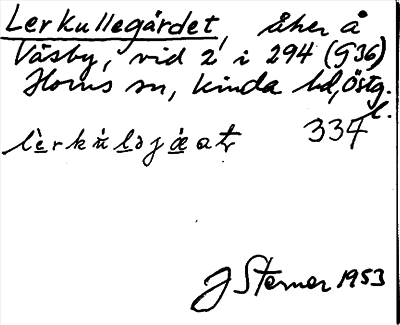 Lerkullegärdet, åker å
Väsby, vid 2 i 294 (G36)
Horns sn, Kinda hd, Östg. l.
lèrkùləjǽat 334
J Sterner 1953